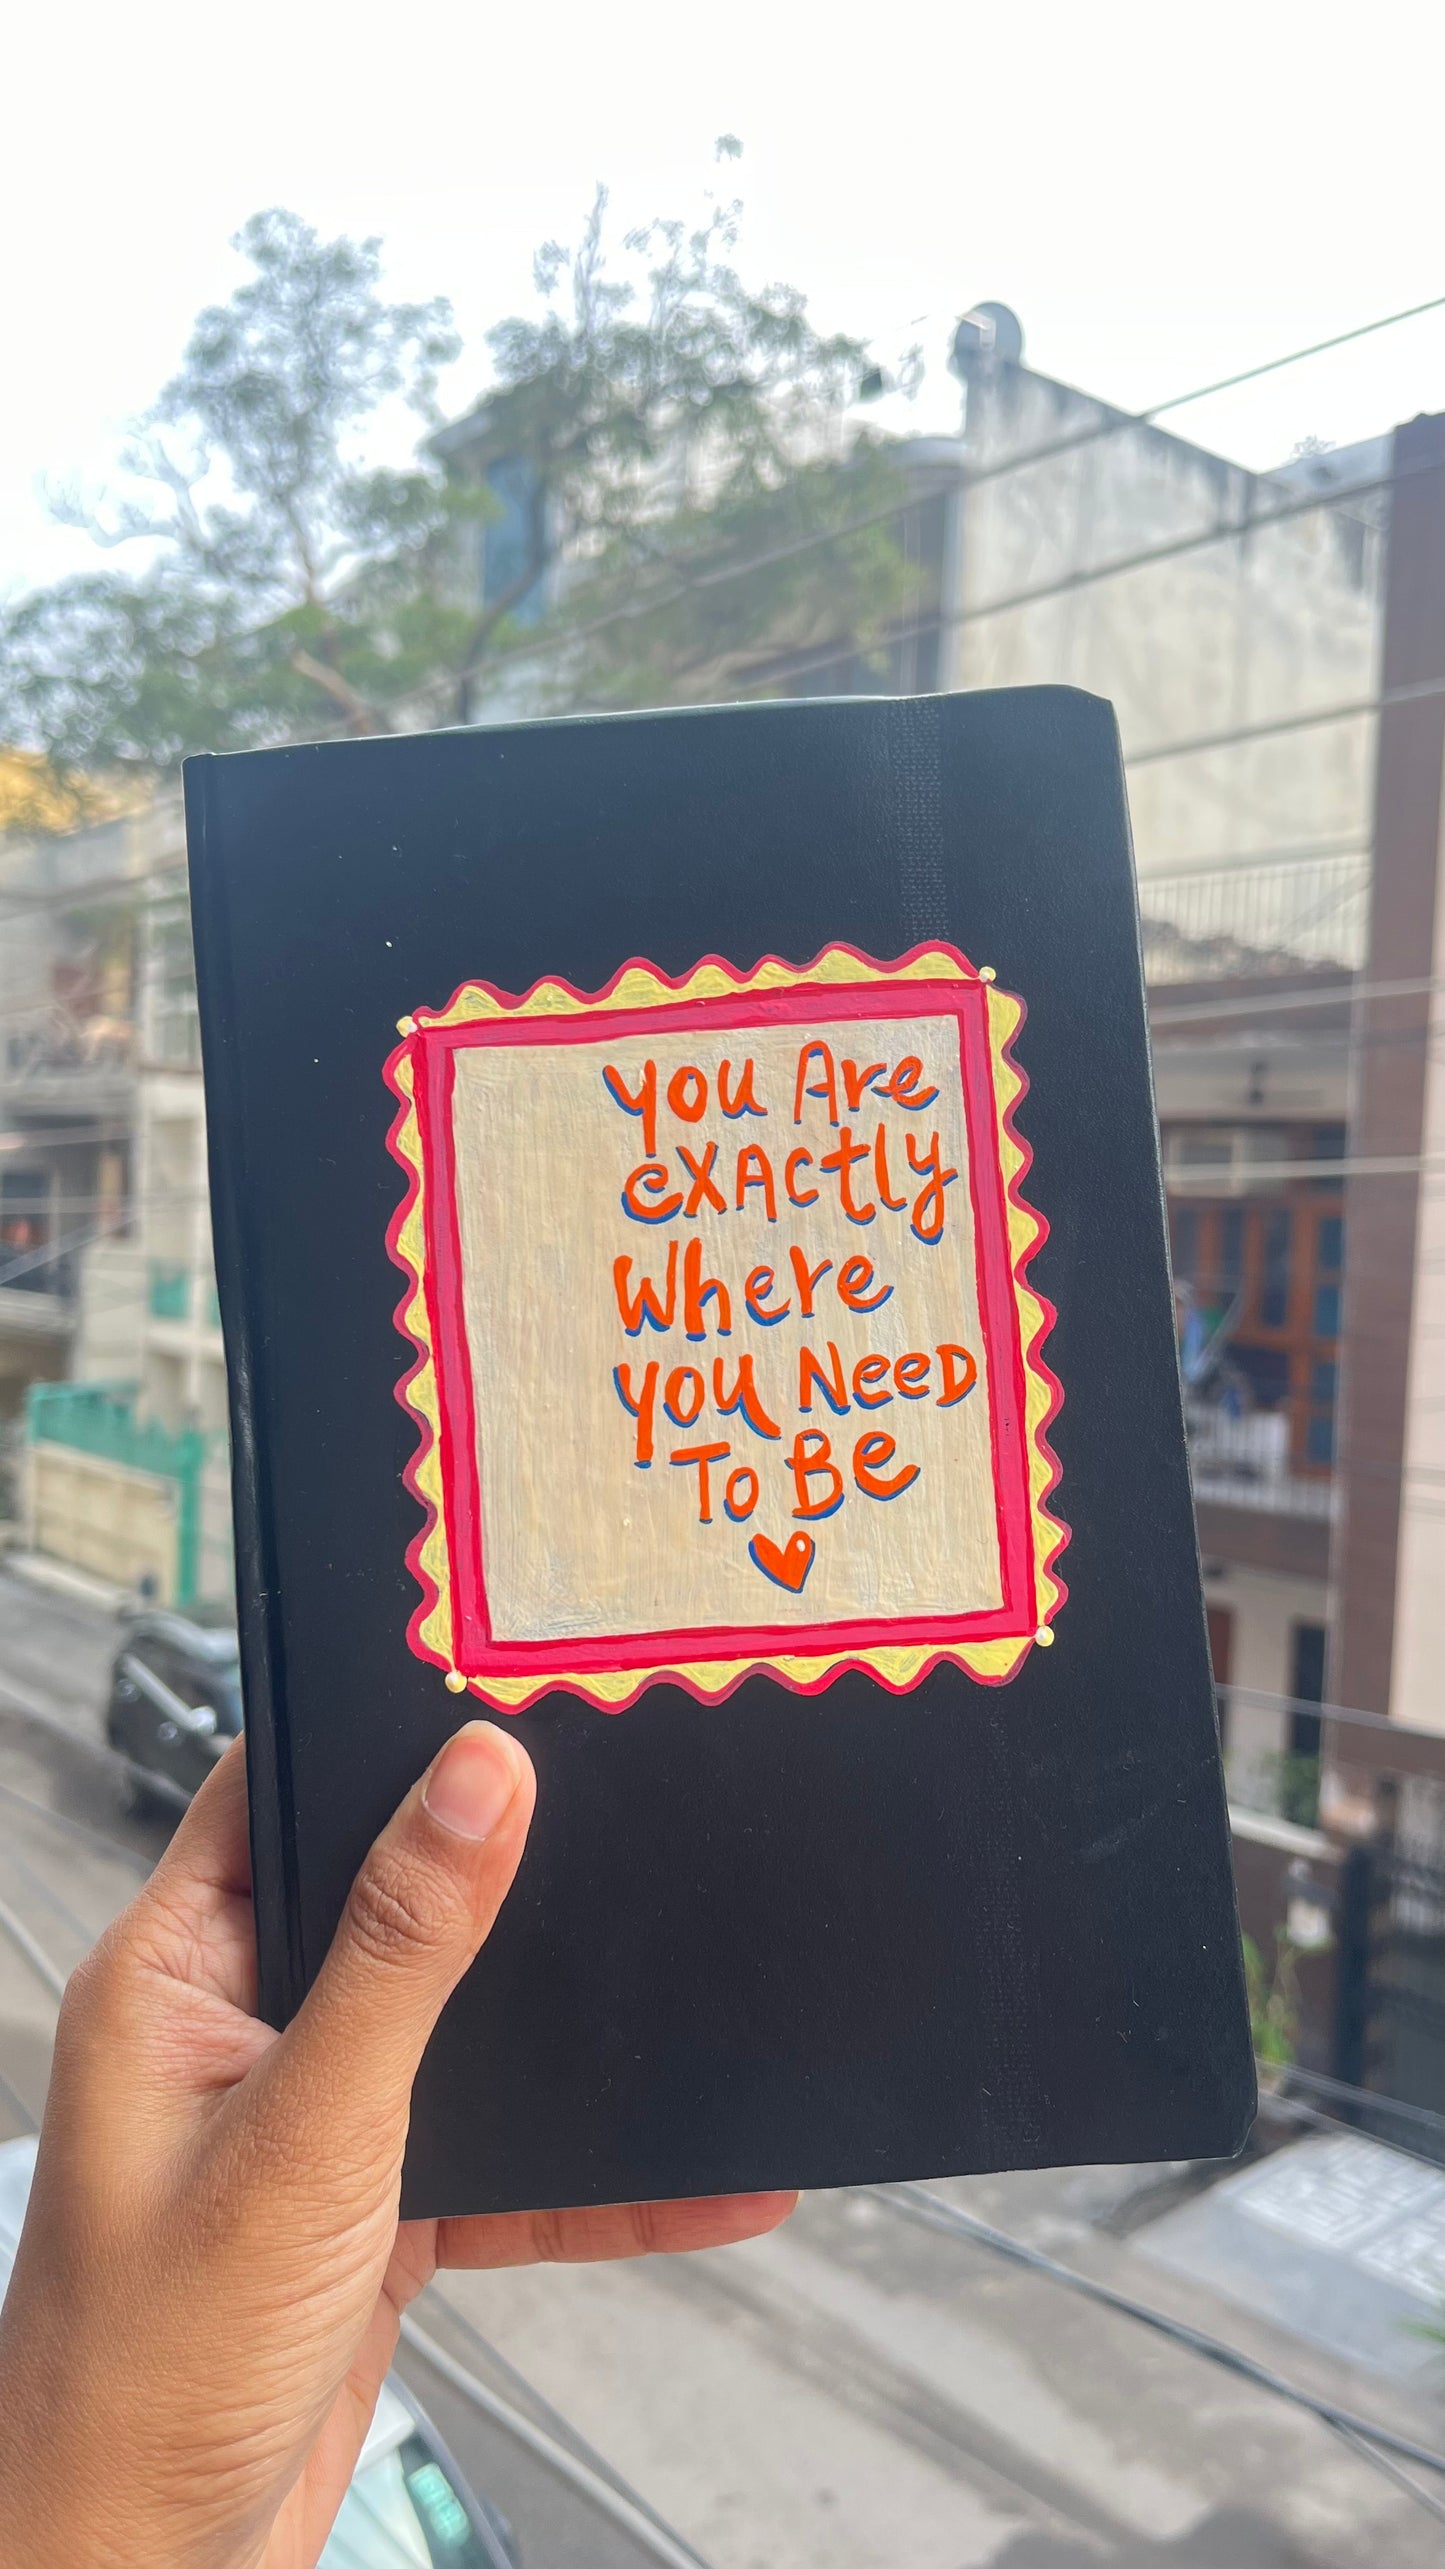 you Are
eXActly
Where
you NeeD
To Be